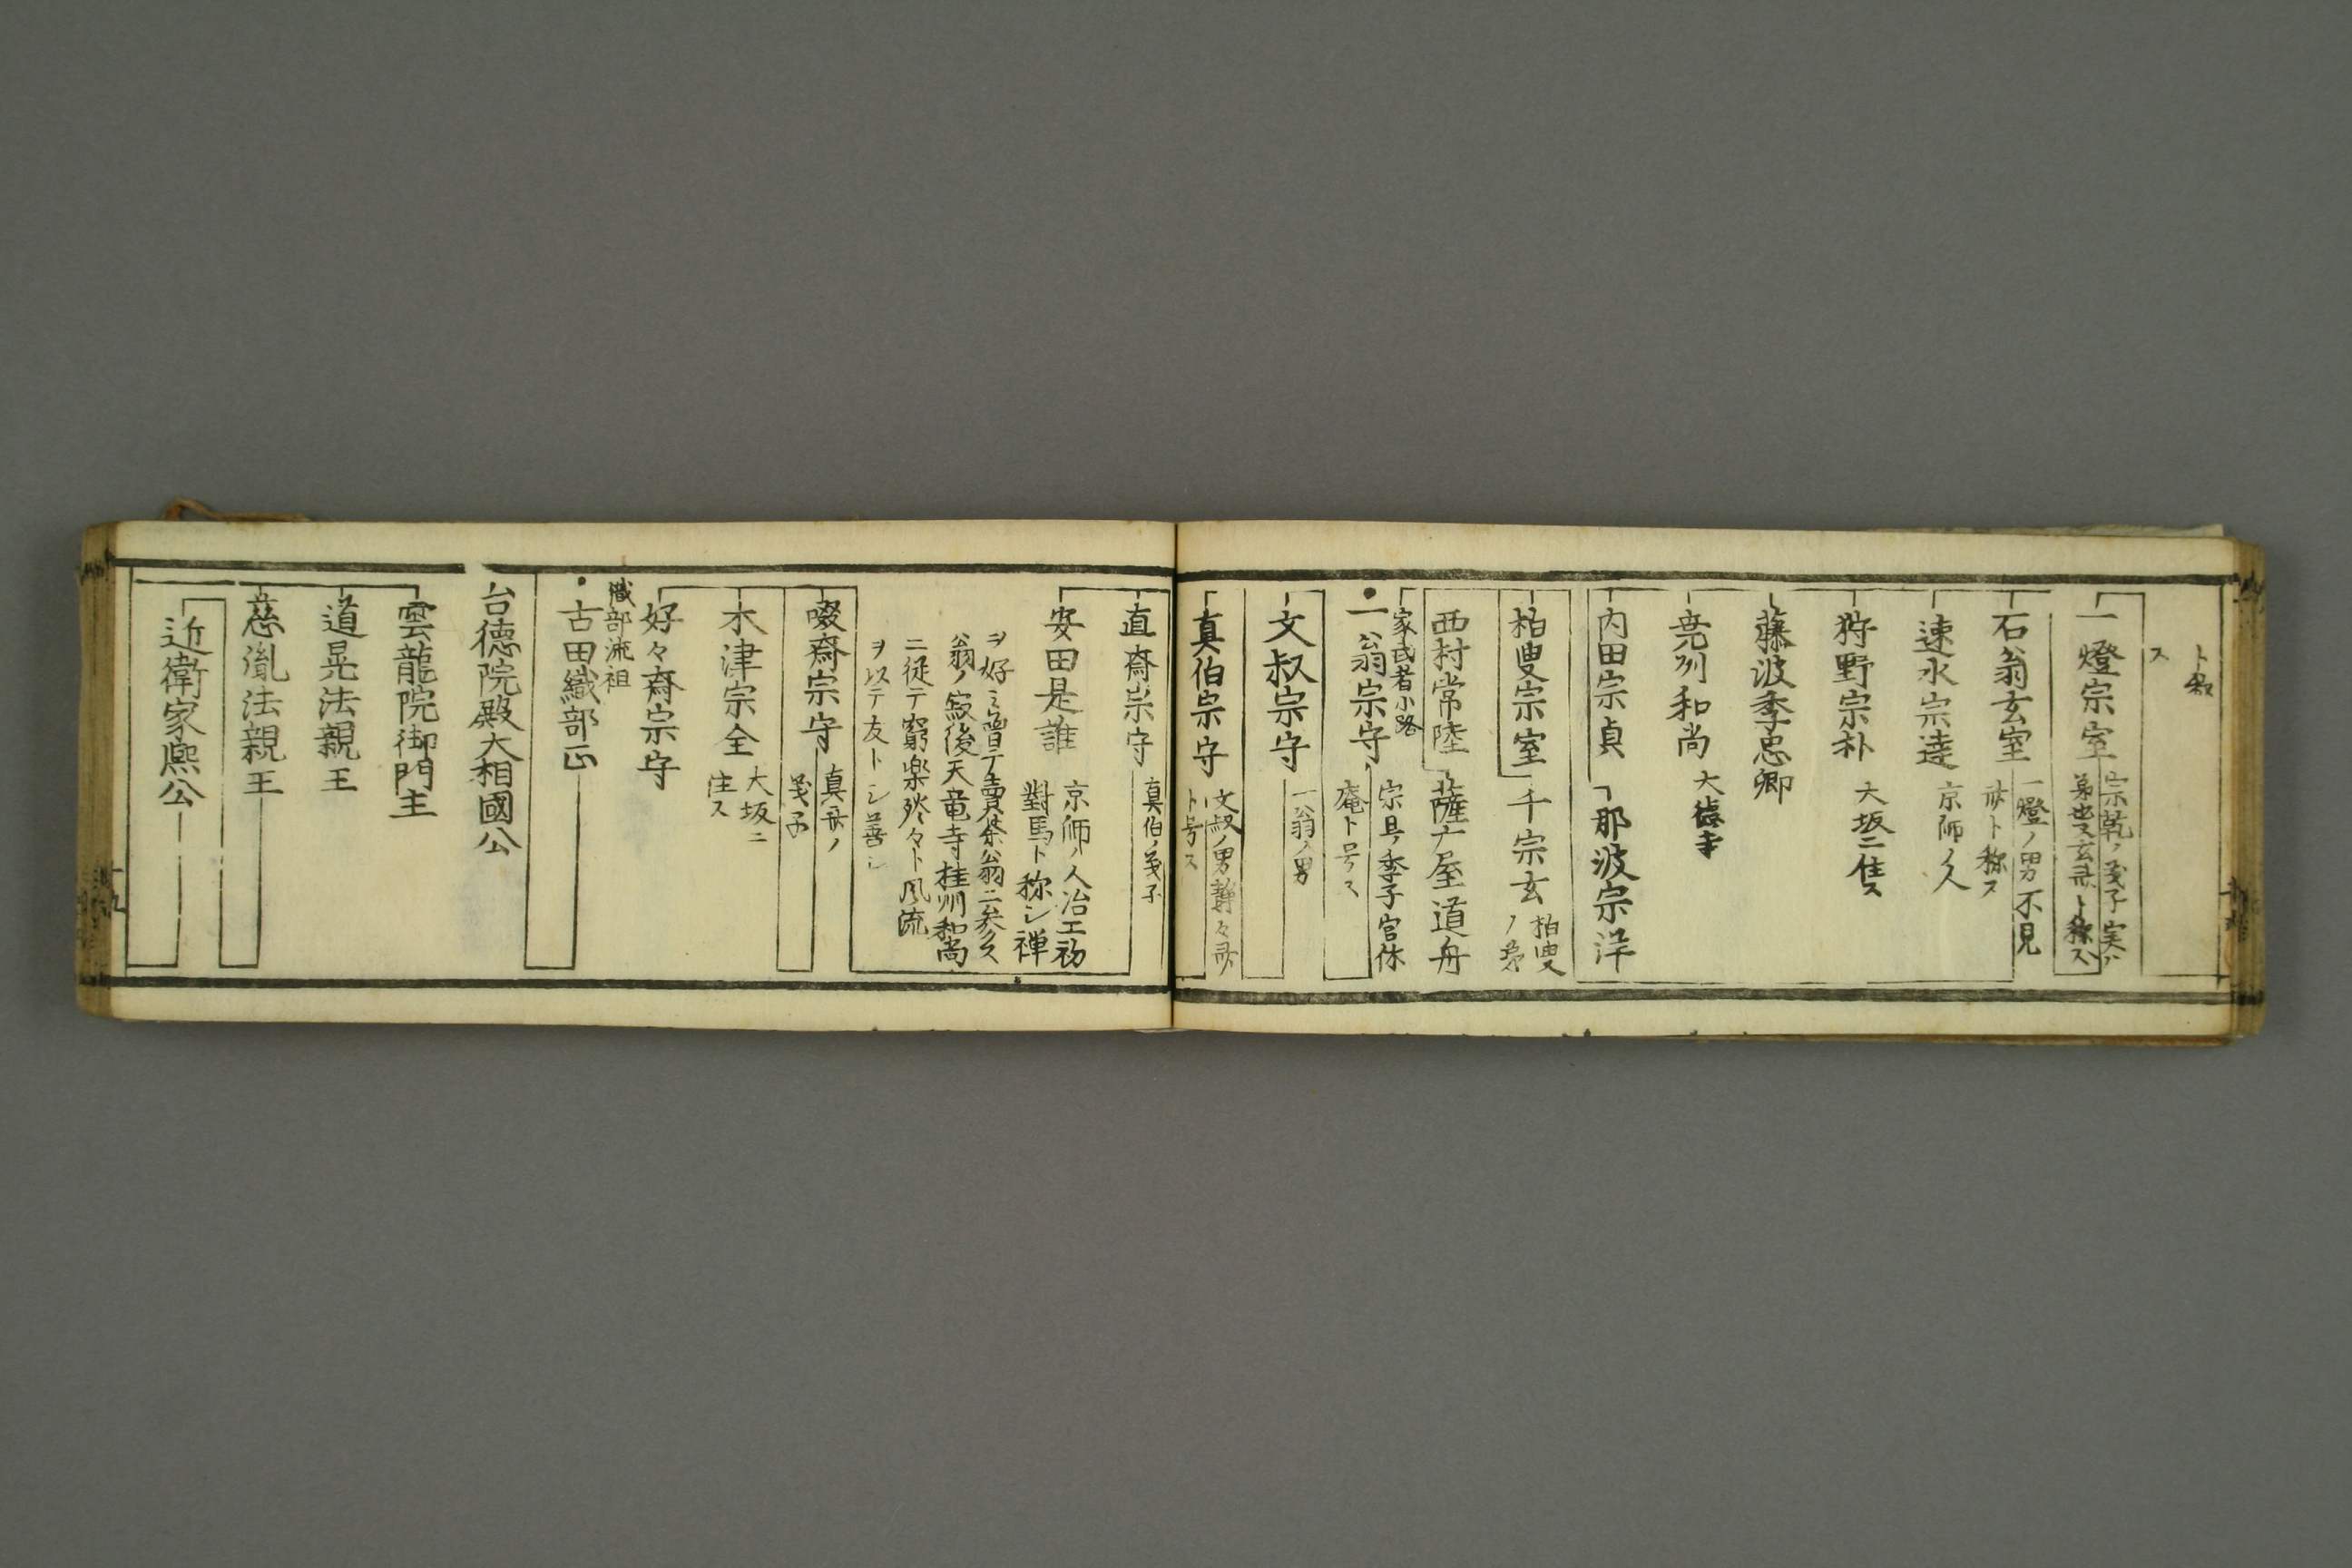 ト和
ス
一燈宗室
宗乾ノ義子実ハ
弟也又玄斎ト称ス
石翁玄室
一燈ノ男不見
斎ト称ス
速水宗達
京師ノ人
狩野宗朴
大坂ニ住ス
藤波季忠卿
尭州和尚
大徳寺
内田宗貞
那波宗洋
柏叟宗室
千宗玄
柏叟
ノ弟
西村常陸
薩广屋道舟
家武者小路
一翁宗守
宗旦ノ季子官休
庵ト号ス
文叔宗守
一翁ノ男
真伯宗守
文叔ノ男静々斎
ト号ス
直斎宗守
真伯ノ義子
安田是誰
京師ノ人冶工初
對馬ト称シ禅
ヲ好ミ曽テ賣茶翁ニ参ス
翁ノ寂後天竜寺桂洲和尚
ニ徒テ窮楽珍々ト風流
ヲ以テ友トシ善シ
啜斎宗守
真斎ノ
義子
木津宗全
大坂ニ
住ス
好々斎宗守
織部流祖
古田織部正
台徳院殿大相國公
雲龍院御門主
道晃法親王
慈胤法親王
近衛家熈公
十九